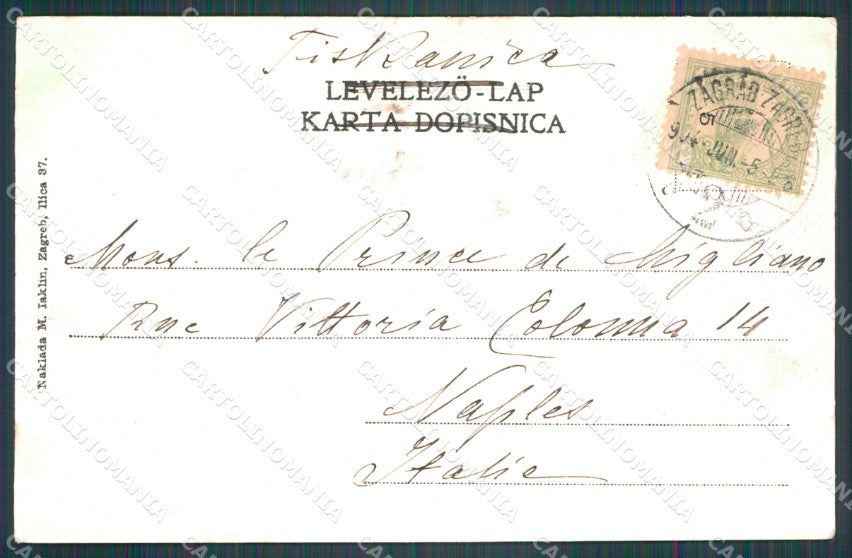 Tiskanica
LEVELEZŐ-LAP
KARTA DOPISNICA
ZAGRAB ZAGREB
904 JUN. -5
Mons. le Prince de Migliano
Rue Vittoria Colonna 14
Naples
Italie
Naklada M. Iaklin, Zagreb, Ilica 37.
CARTOLINOMANIA